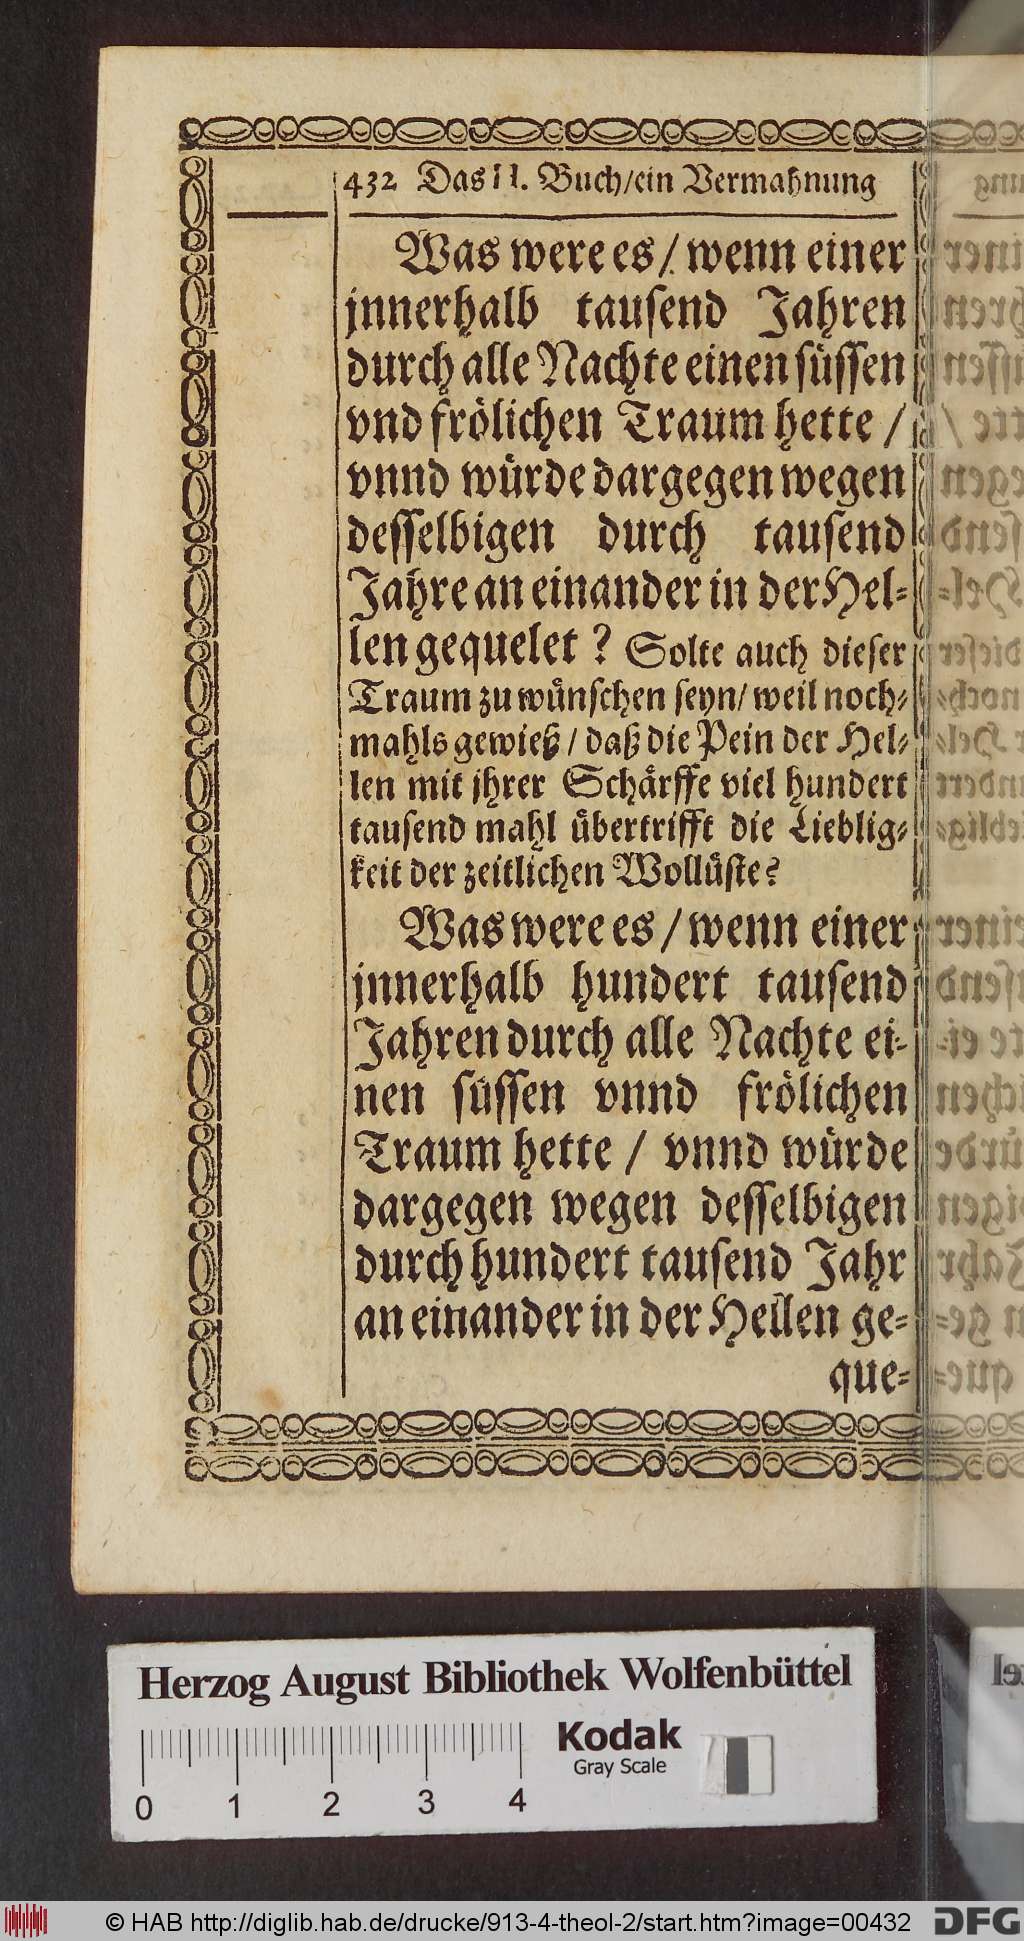 432 Das II. Buch/ein Vermahnung
Was were es/ wenn einer
jnnerhalb tausend Jahren
durch alle Nachte einen süssen
vnd frölichen Traum hette /
vnnd würde dargegen wegen
desselbigen durch tausend
Jahre an einander in der Hel-
len gequelet ? Solte auch dieser
Traum zu wünschen seyn/ weil noch-
mahls gewieß / daß die Pein der Hel-
len mit jhrer Schärffe viel hundert
tausend mahl übertrifft die Lieblig-
keit der zeitlichen Wollüste?
Was were es / wenn einer
jnnerhalb hundert tausend
Jahren durch alle Nachte ei-
nen süssen vnnd frölichen
Traum hette / vnnd würde
dargegen wegen desselbigen
durch hundert tausend Jahr
an einander in der Hellen ge-
que-
Herzog August Bibliothek Wolfenbüttel
Kodak
Gray Scale
0 1 2 3 4
© HAB http://diglib.hab.de/drucke/913-4-theol-2/start.htm?image=00432
DFG